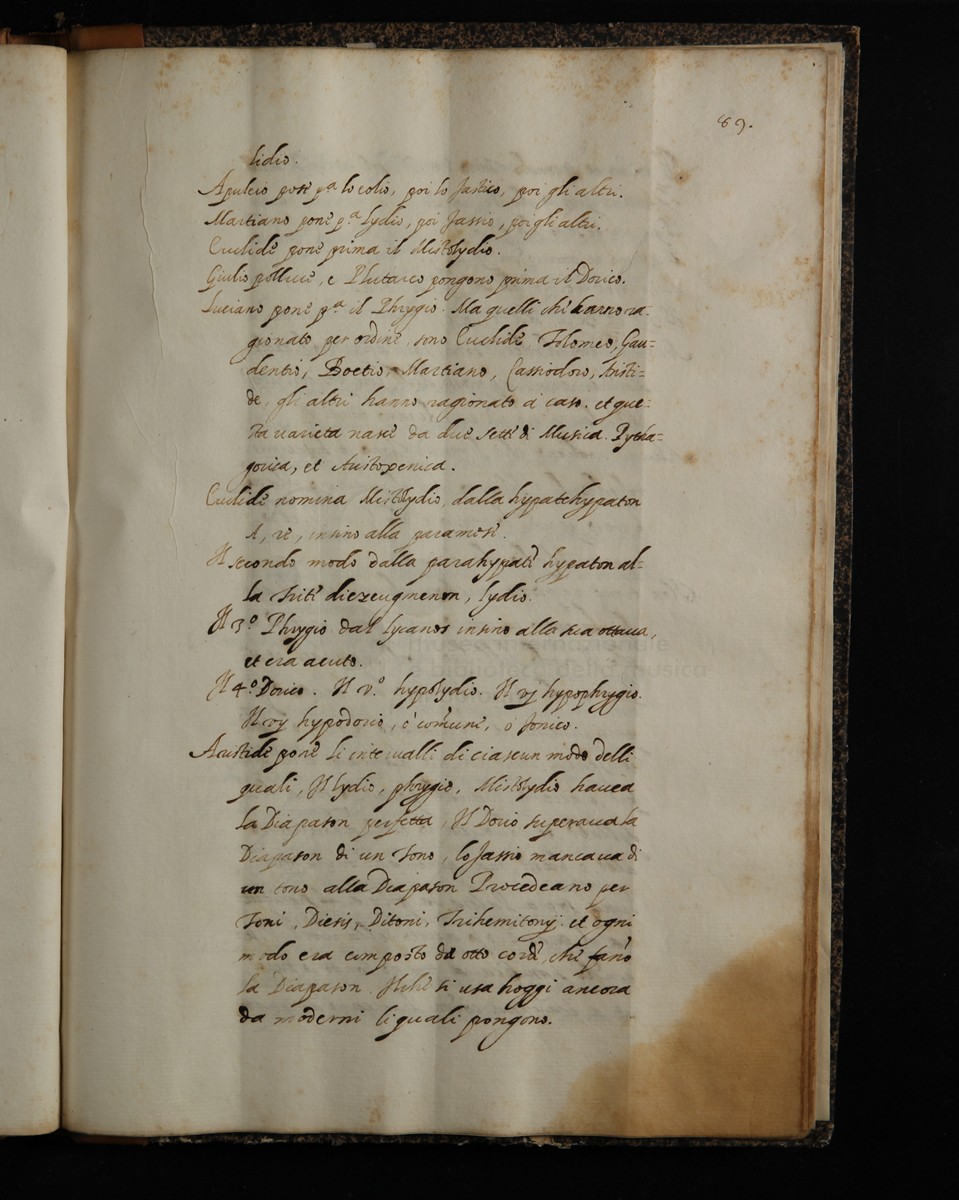 89.
lidio.
Apuleio pose p.a lo eolio, poi lo Jastico, poi gli altri.
Martiano pone p.a lydio, poi Jassio, poi gli altri.
Euclide pone prima il Mistolydio.
Giulio polluce, e Plutarco pongono prima il Dorico.
Luciano pone p.a il Phrygio. Ma quelli che hanno ra-
gionato per ordine, sono Euclide, Tolomeo, Gau=
dentio, Boetio, Martiano, Cassiodoro, Aristi=
de, gli altri hanno ragionato a caso. et que=
sta varieta nasce da due sette di Musica. Pytha=
gorica, et Aristoxenica.
Euclide nomina Mistolydio, dalla hypate hypaton
A, re, insino alla paramese.
Il secondo modo dalla parahypate hypaton al=
la trite diezeugmenon, lydio.
Il 3.o Phrygio dal lycanos insino alla sua ottava,
et era acuto.
Il 4.o Dorico. Il v.o hypolydio. Il vj hypophrygio.
Il vij hypodorio, ò comune, ò Jonico.
Aristide pone li intervalli di ciascun modo delli
quali, Il lydio, phrygio, Mistolydio havea
la Diapason perfetta, Il Dorio superava la
Diapason di un tono, lo Jassio mancava di
un tono alla Diapason Procedeano per
Toni, Diesis, Ditoni, Trihemitonij. et ogni
modo era composto da otto corde, che fano
la Diapason. Il che si usa hoggi ancora
da moderni li quali pongono.